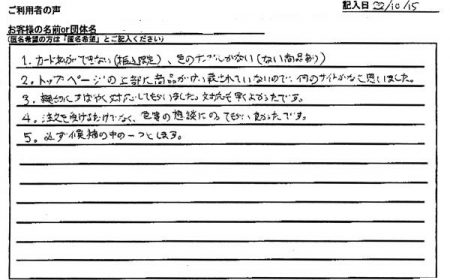 ご利用者の声
記入日 22/10/15
お客様の名前or団体名
(匿名希望の方は「匿名希望」とご記入ください)
1. カードが できない(振込限定)、色のサンプルがない(ない商品あり)
2. トップページの上部に商品が 載されていないので、何のサイトかなと思いました。
3. すばやく対応してもらいました。対応も早くよかったです。
4. 注文を受けるだけでなく、色等の相談にのってもらい良かったです。
5. 必ず候補の中の一つとします。